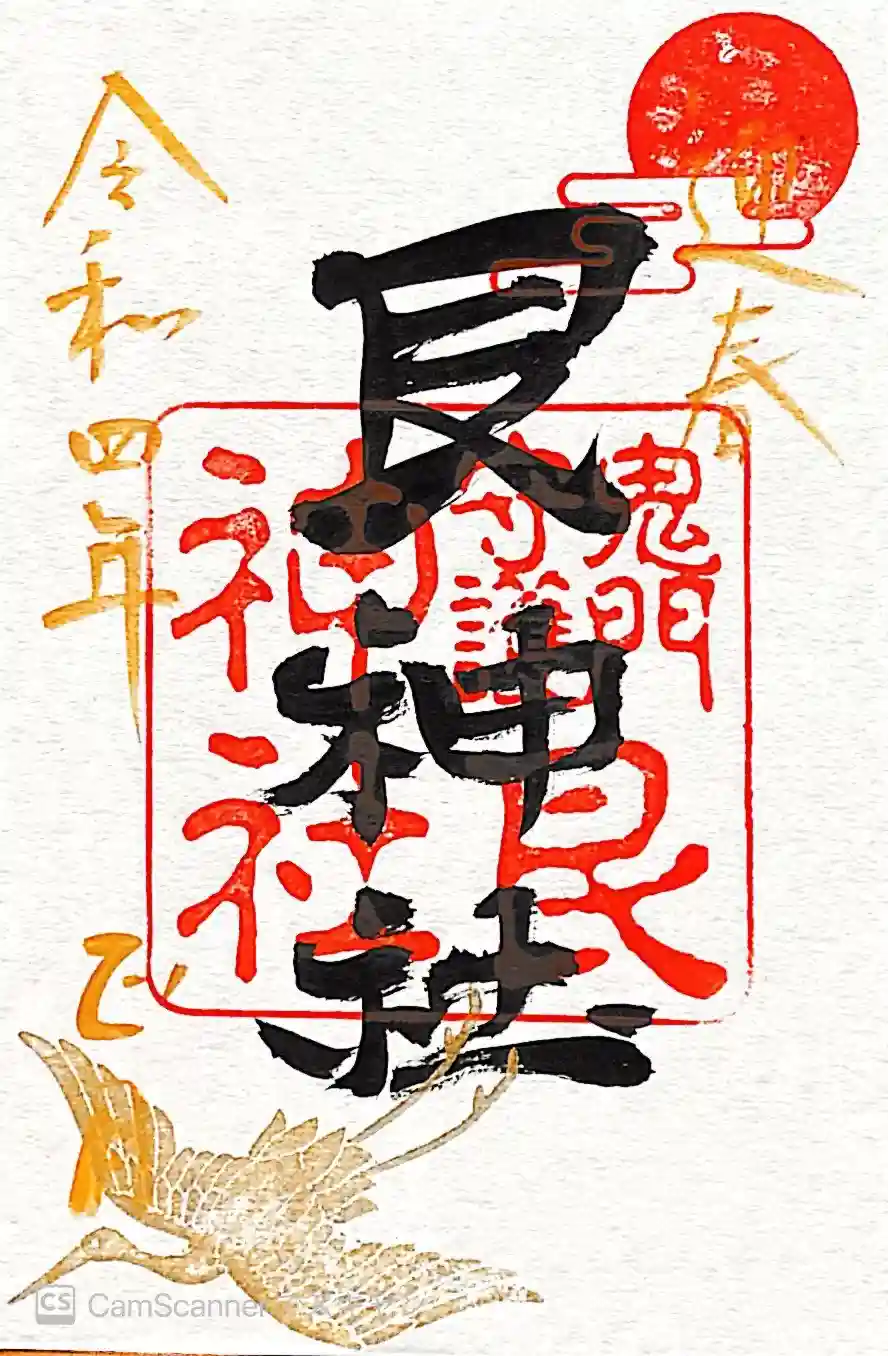 迎春
艮神社
鬼門
守護
艮
神社
令和四年 正月
CS CamScanner